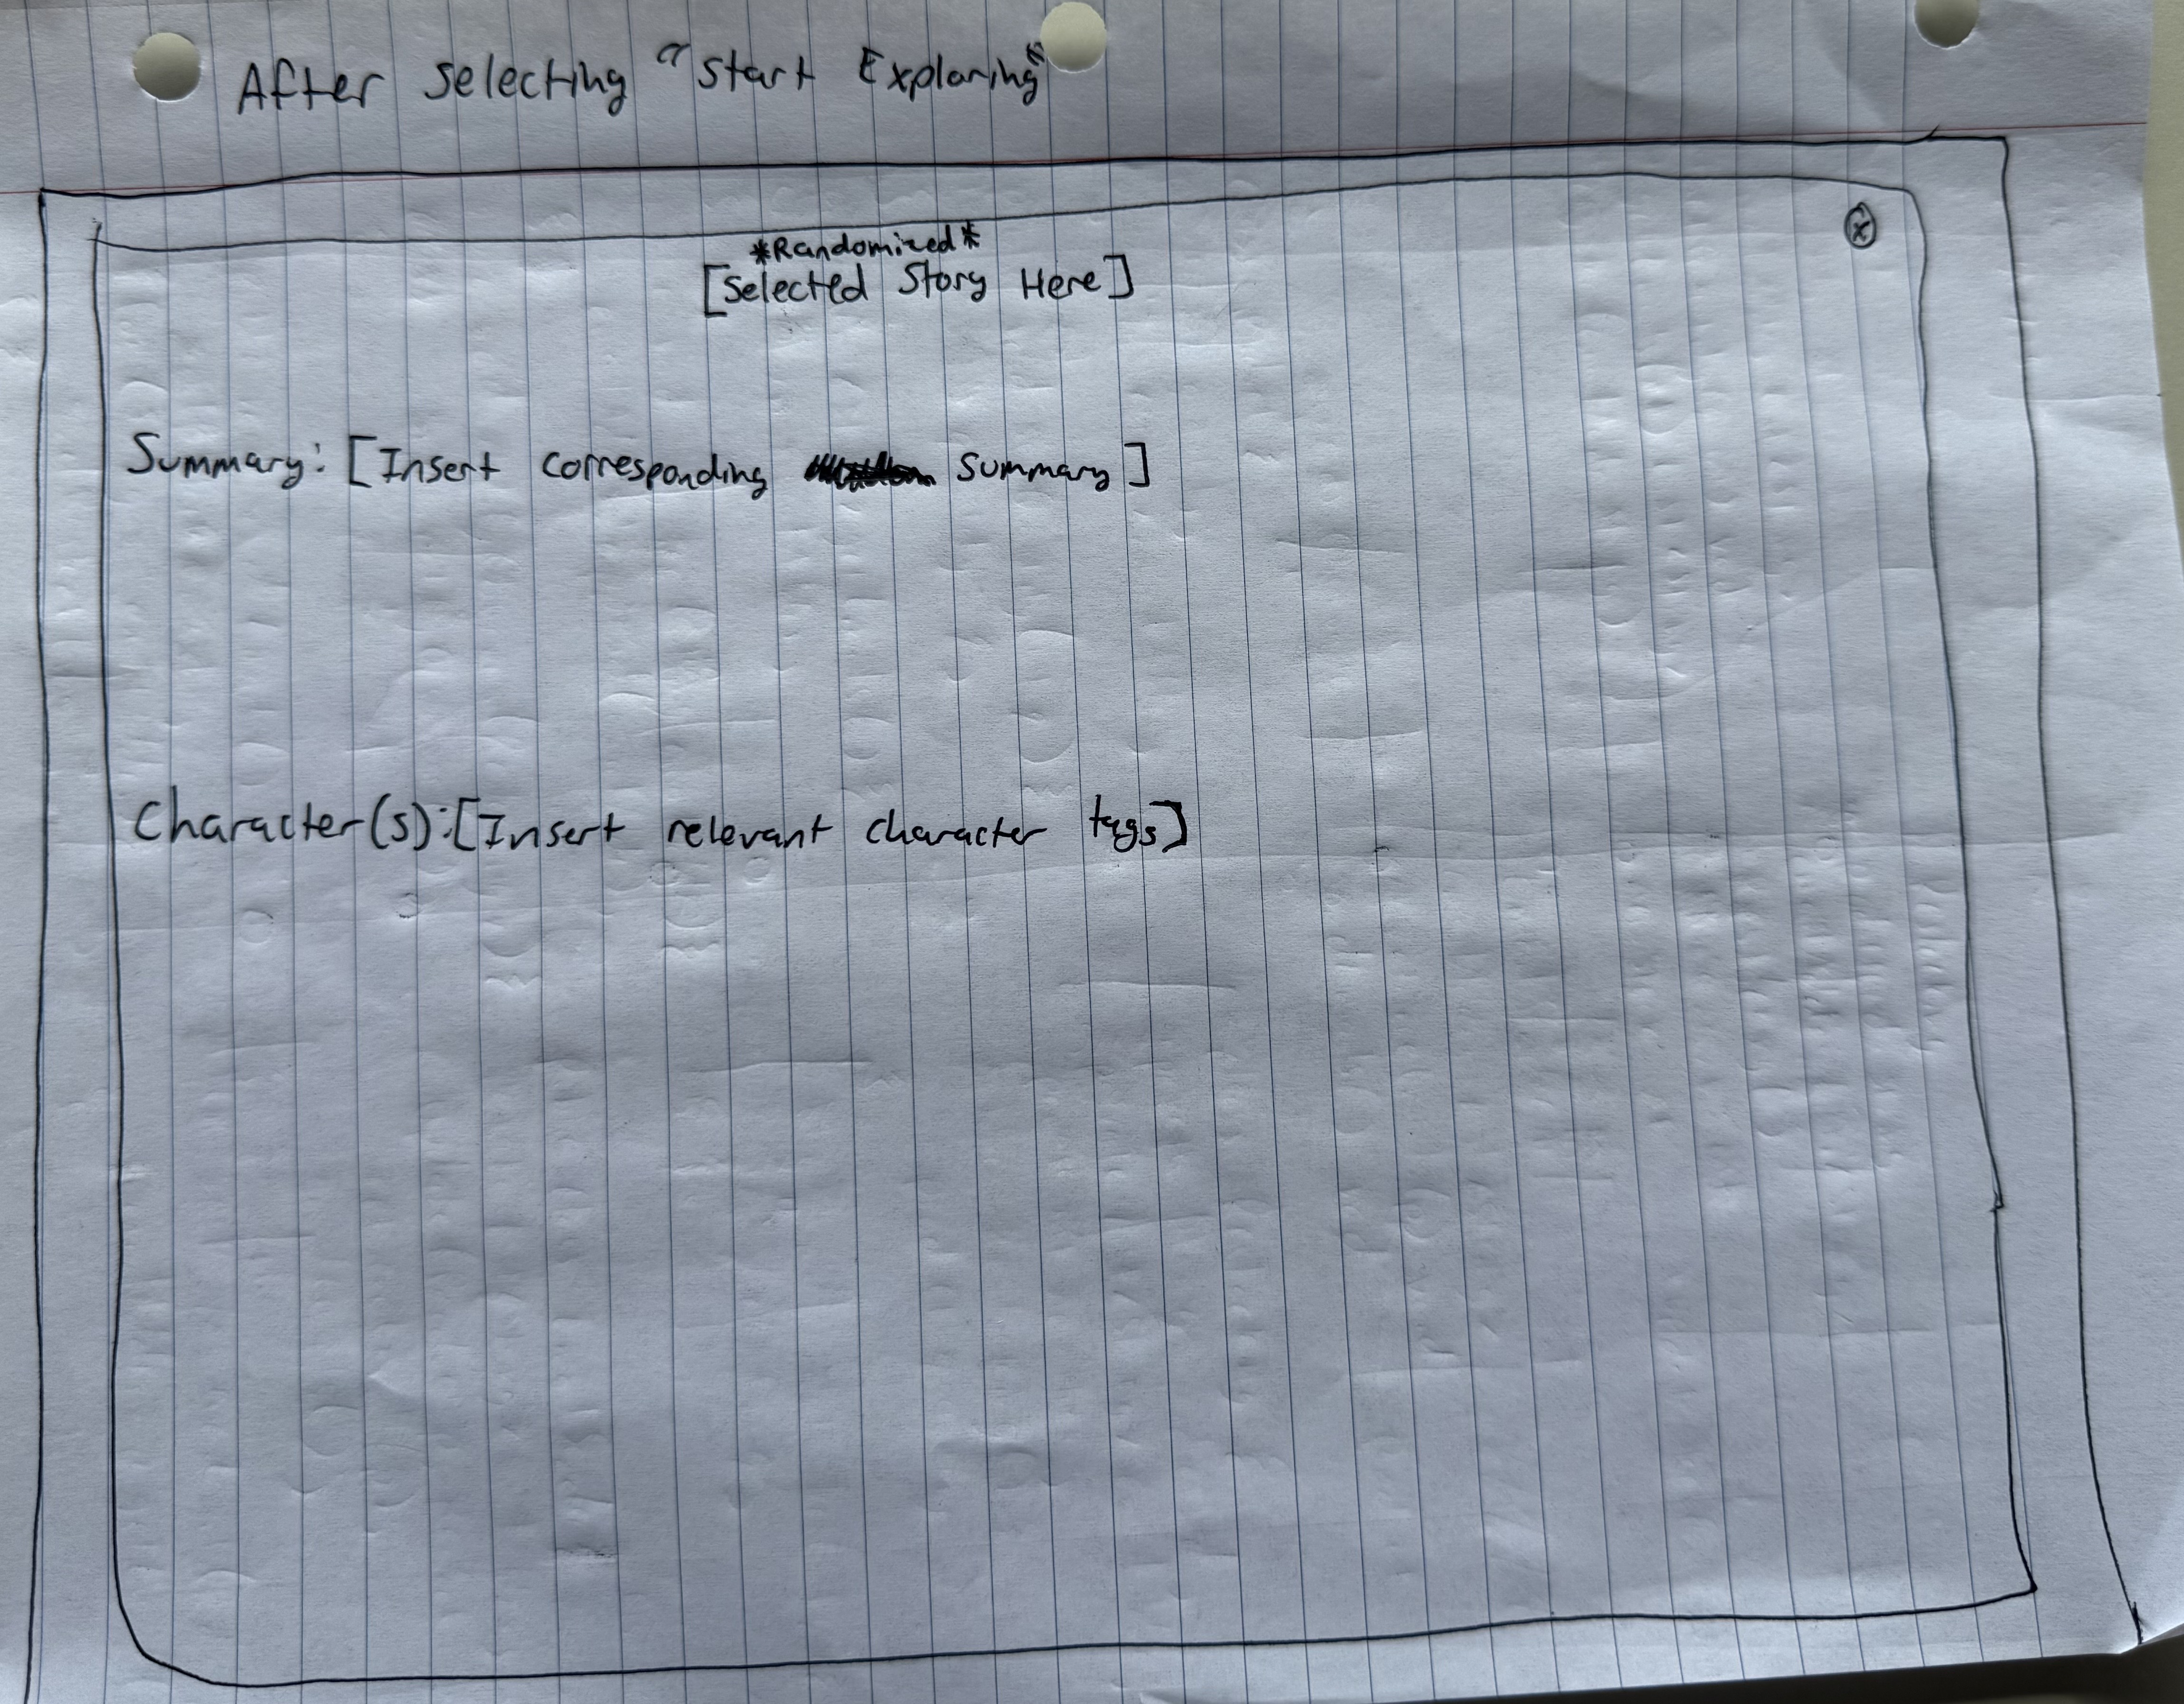 After selecting "Start Exploring"
*Randomized*
[Selected Story Here]
x
Summary: [Insert corresponding Summary]
Character(s):[Insert relevant character tags]